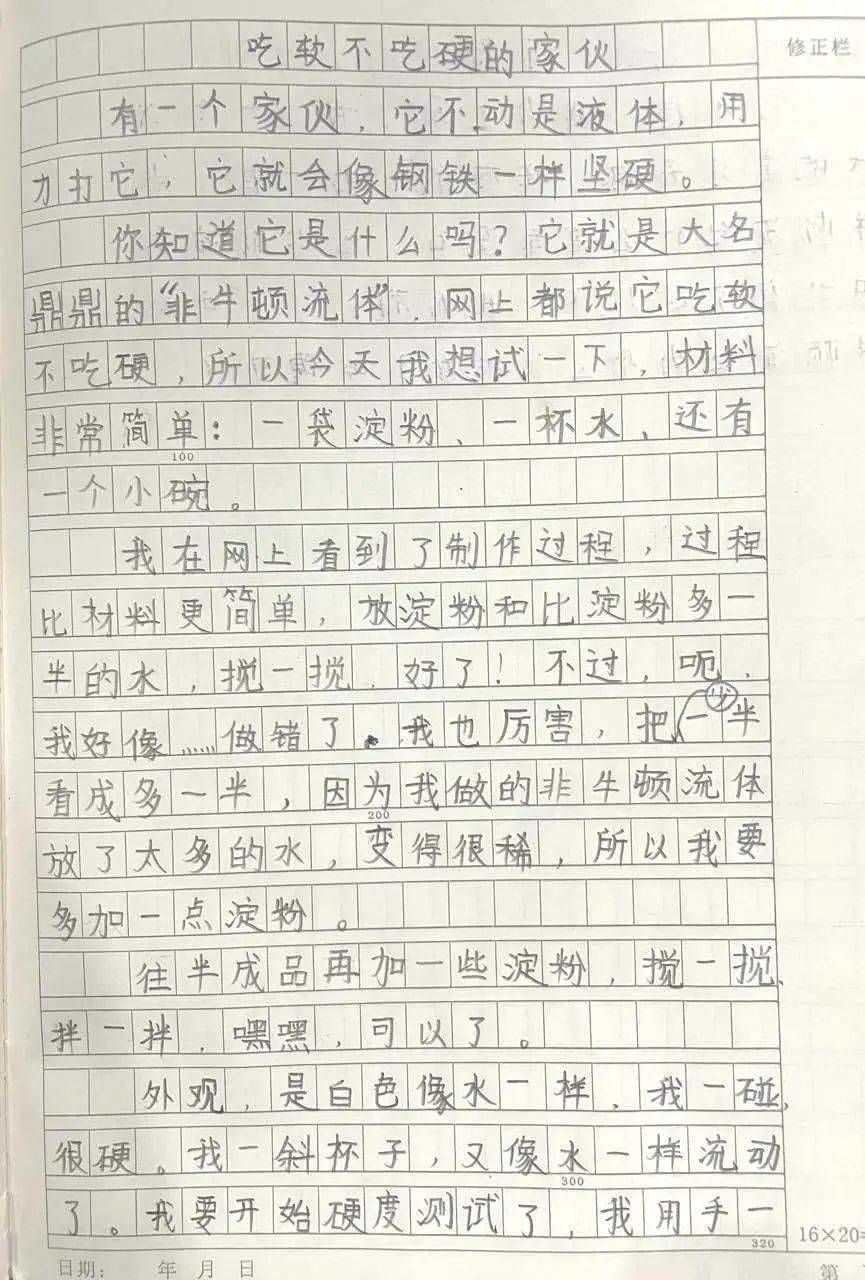 吃软不吃硬的家伙
修正栏
有一个家伙，它不动是液体，用
力打它，它就会像钢铁一样坚硬。
你知道它是什么吗？它就是大名
鼎鼎的“非牛顿流体”，网上都说它吃软
不吃硬，所以今天我想试一下，材料
非常简单：一袋淀粉、一杯水、还有
100
一个小碗。
我在网上看到了制作过程，过程
比材料更简单，放淀粉和比淀粉多一
半的水，搅一搅，好了！不过，呃，
我好像……做错了。我也厉害，把少一半
看成多一半，因为我做的非牛顿流体
200
放了太多的水，变得很稀，所以我要
多加一点淀粉。
往半成品再加一些淀粉，搅一搅、
拌一拌，嘿嘿，可以了。
外观，是白色像水一样，我一碰，
很硬。我一斜杯子，又像水一样流动
300
了。我要开始硬度测试了，我用手一
320
16×20=
日期： 年 月 日
第